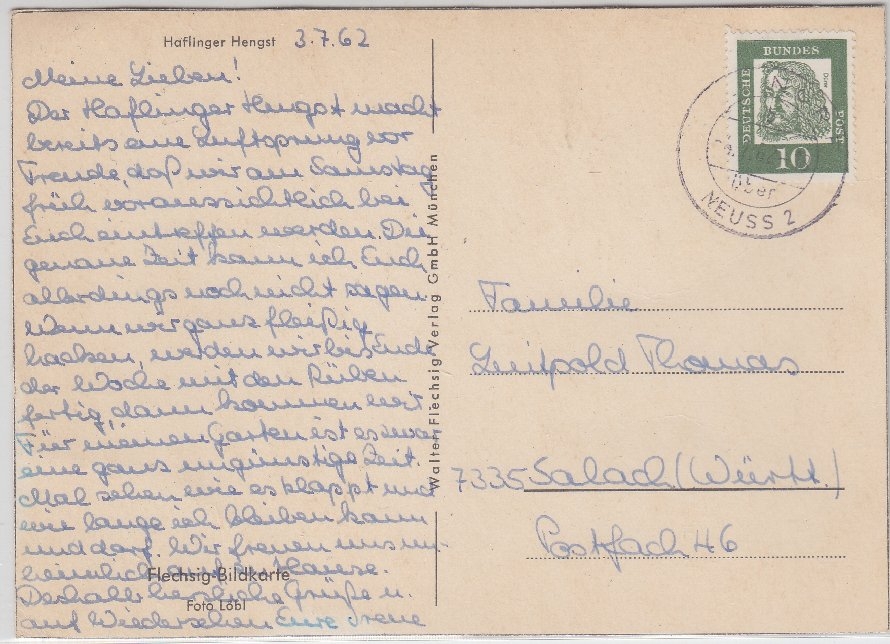 Haflinger Hengst 3.7.62
Meine Lieben!
Der Haflinger Hengst macht
bereits eine Luftsprung vor
Freude, daß wir am Samstag
früh voraussichtlich bei
Euch eintreffen werden. Die
genaue Zeit kann ich Euch
allerdings noch nicht sagen.
Wenn wir ganz fleißig
hacken, werden wir bis Ende
der Woche mit den Rüben
fertig, dann kommen wir.
Für meinen Garten ist es zwar
eine ganz ungünstige Zeit.
Mal sehen wie es klappt und
wie lange ich bleiben kann
und darf. Wir freuen uns un-
heimlich auf zu Hause.
Deshalb herzliche Grüße u.
auf Wiedersehen Eure Irene
Flechsig-Bildkarte
Foto Löbl
Walter Flechsig Verlag GmbH München
DEUTSCHE
BUNDES
POST
Dürer
10
über
NEUSS 2
Familie
Luitpold Thomas
7335 Salach (Württ.)
Postfach 46